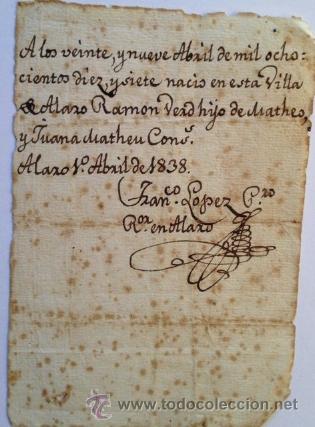 A los veinte, y nueve Abril de mil ocho-
cientos diez, y siete nacio en esta Villa
de Alaro Ramon Verd hijo de Matheo,
y Juana Matheu Cons.
Alaro 1º. Abril de 1838.
Franco. Lopez Pro
Ror. en Alaro
www.todocoleccion.net